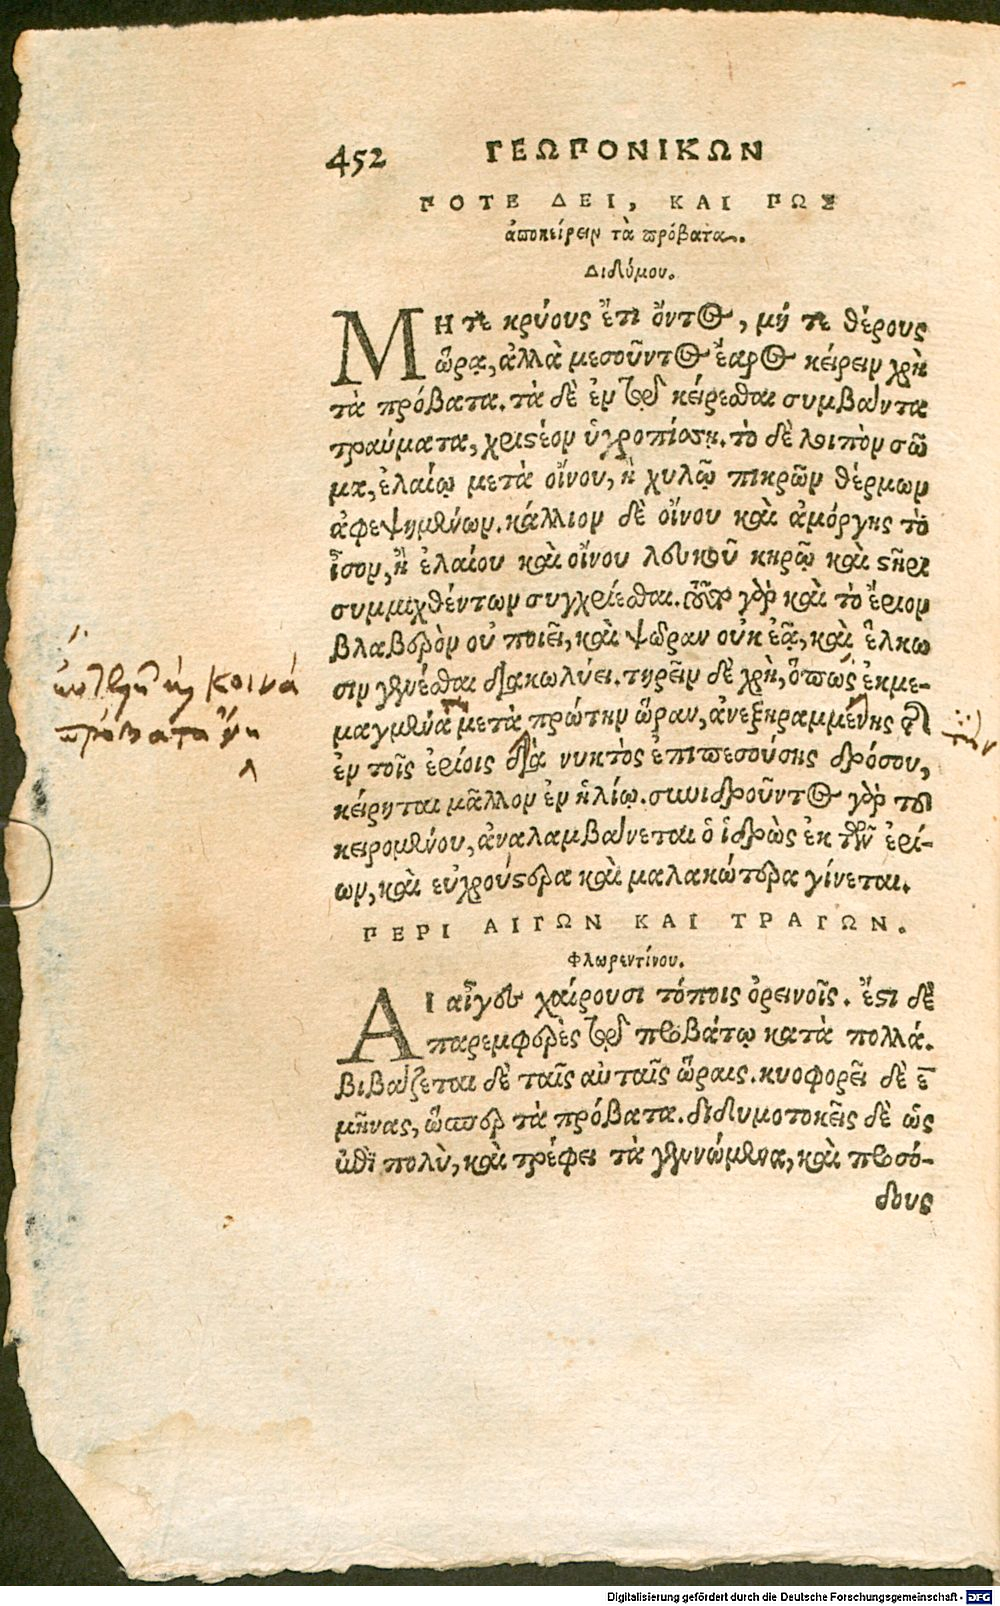 452 ΓΕΩΠΟΝΙΚΩΝ
ΠΟΤΕ ΔΕΙ, ΚΑΙ ΠΩΣ
ἀποκείρειν τὰ πρόβατα.
Διδύμου.
ΜΗτε κρύους ἔτι ὄντος, μή τε θέρους
ὥρᾳ, ἀλλὰ μεσοῦντος ἔαρος κείρειν χρὴ
τὰ πρόβατα. τὰ δὲ ἐν τῷ κείρεσθαι συμβαίνοντα
τραύματα, χριστέον ὑγροπίσσῃ. τὸ δὲ λοιπὸν σῶ
μα, ἐλαίῳ μετὰ οἴνου, ἢ χυλῷ πικρῶν θέρμων
ἀφεψημένων. κάλλιον δὲ οἴνου καὶ ἀμόργης τὸ
ἶσον, ἢ ἐλαίου καὶ οἴνου λευκοῦ κηρῷ καὶ στῆρι
συμμιχθέντων συγχρίεσθαι. οὔτε γὰρ καὶ τὸ ἔριον
βλαβερὸν οὐ ποιεῖ, καὶ ψώραν οὐκ ἐᾷ, καὶ ἕλκω
σιν γενέσθαι διακωλύει. τηρεῖν δὲ χρὴ, ὅπως ἐκμε-
μαγμένα μετὰ πρώτην ὥραν, ἀνεξηραμμένης τῆς
ἐν τοῖς ἐρίοις διὰ νυκτὸς ἐπιπεσούσης δρόσου,
κείρηται μᾶλλον ἐν ἡλίῳ. συνιδροῦντος γὰρ τοῦ
κειρομένου, ἀναλαμβάνεται ὁ ἱδρὼς ἐκ τῶν ἐρί-
ων, καὶ εὐχρούστερα καὶ μαλακώτερα γίνεται.
ΠΕΡΙ ΑΙΓΩΝ ΚΑΙ ΤΡΑΓΩΝ.
Φλωρεντίνου.
ΑΙ αἶγες χαίρουσι τόποις ὀρεινοῖς. ἔστι δὲ
παρεμφερὲς τῷ προβάτῳ κατὰ πολλά.
βιβάζεται δὲ ταῖς αὐταῖς ὥραις. κυοφορεῖ δὲ ε̄
μῆνας, ὥσπερ τὰ πρόβατα. διδυμοτοκεῖς δὲ ὡς
ἐπὶ πολὺ, καὶ τρέφει τὰ γεννώμενα, καὶ προσό-
δους
κοινὰ
πρόβατα
Digitalisierung gefördert durch die Deutsche Forschungsgemeinschaft - DFG